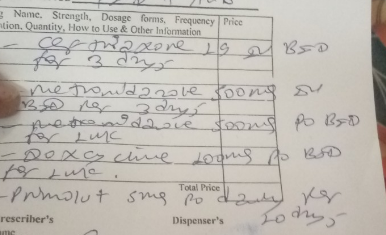 g Name, Strength, Dosage forms, Frequency Price
ation, Quantity, How to Use & Other Information
- Ceftriaxone 1g IV BID
for 3 days
metronidazole 500mg IV
BID for 3 days
- metronidazole 500mg PO BID
for 1 wk
- Doxycline 100mg PO BID
for 1 wk.
Total Price
- Primolut 5mg PO daily for
10 days
rescriber's Dispenser's